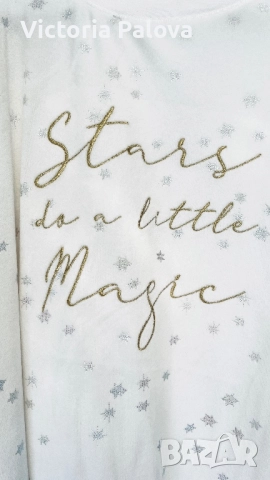 Victoria Palova
Stars
do a little
Magic
BAZAR